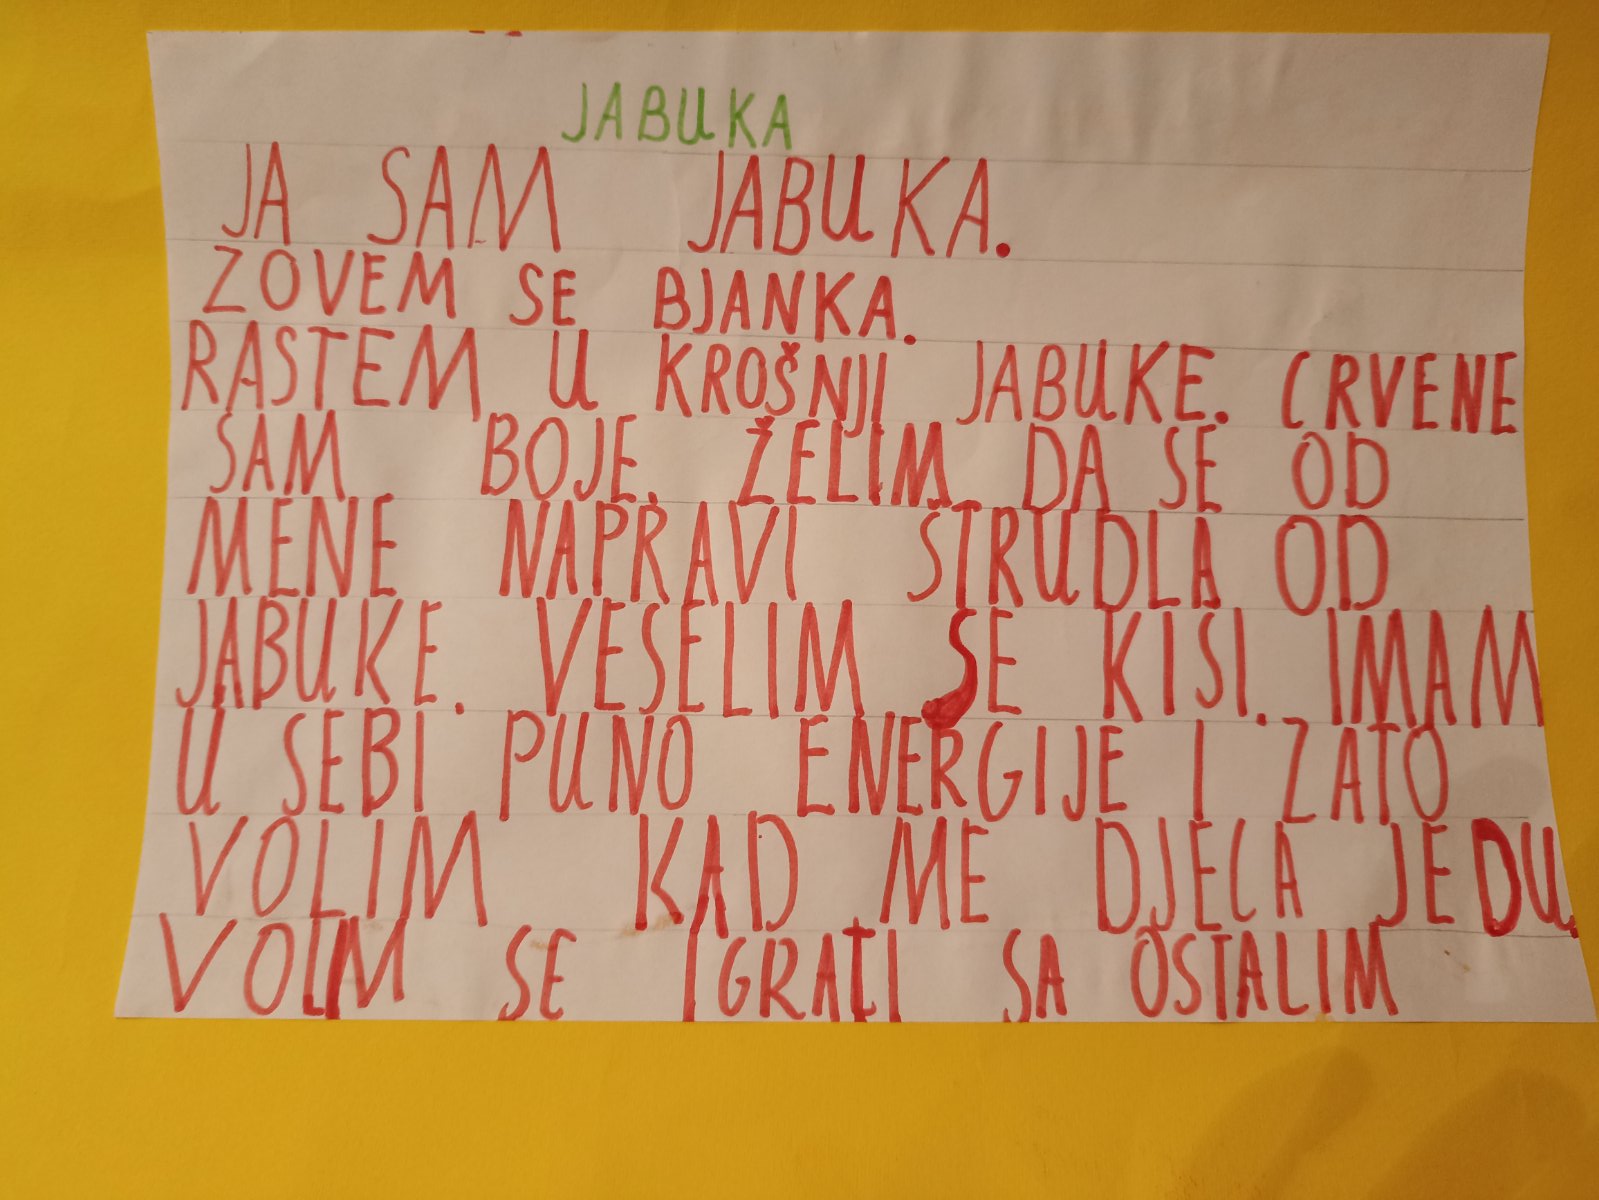 JABUKA
JA SAM JABUKA.
ZOVEM SE BJANKA.
RASTEM U KROŠNJI JABUKE. CRVENE
SAM BOJE. ŽELIM DA SE OD
MENE NAPRAVI STRUDLA OD
JABUKE. VESELIM SE KISI. IMAM
U SEBI PUNO ENERGIJE I ZATO
VOLIM KAD ME DJECA JEDU.
VOLIM SE IGRATI SA OSTALIM